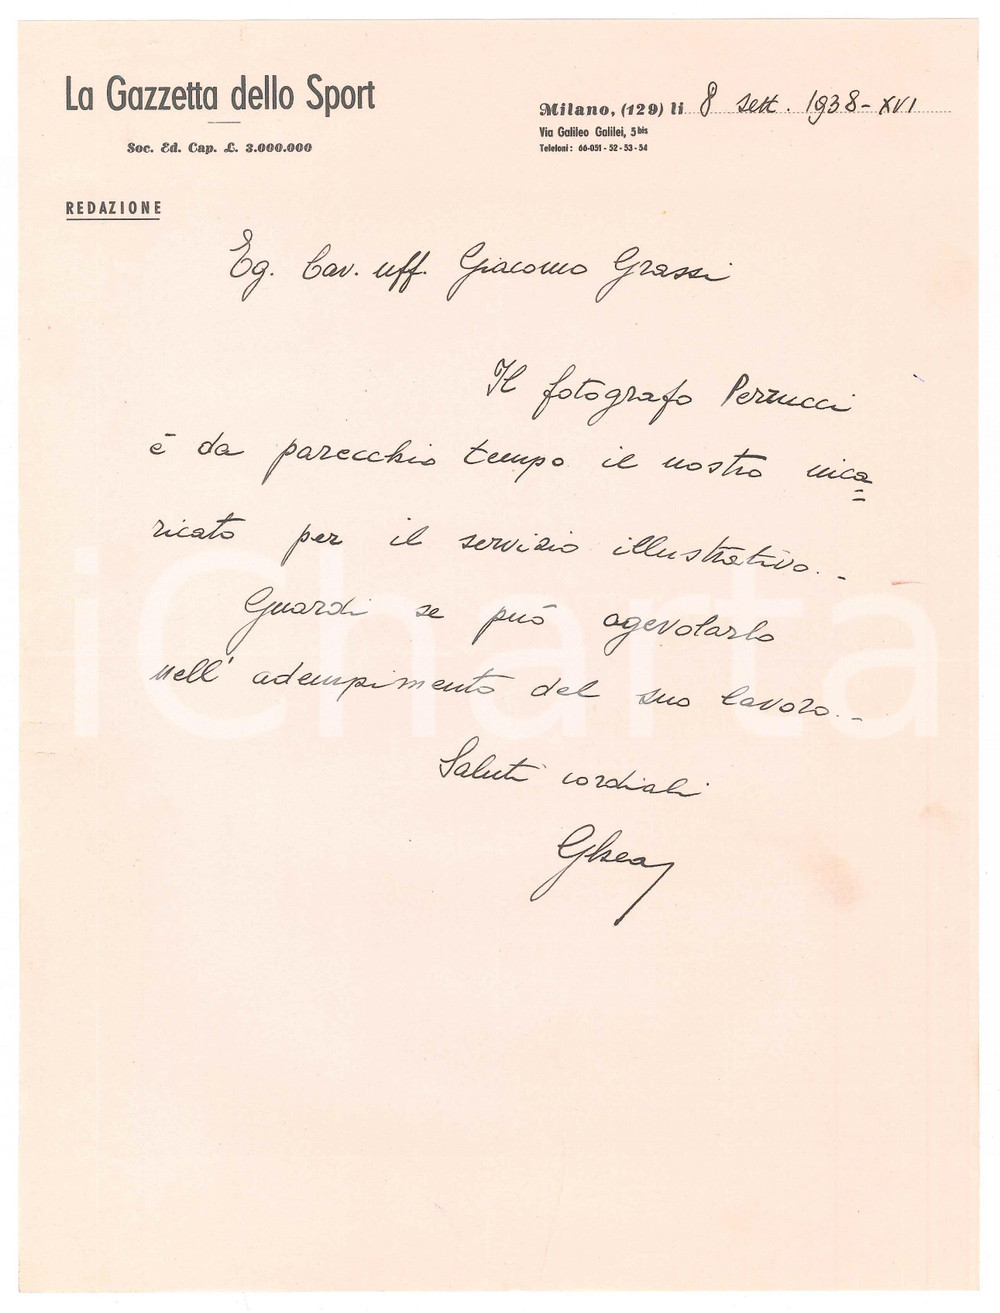 La Gazzetta dello Sport
Soc. Ed. Cap. £. 3.000.000
Milano, (129) li 8 sett. 1938-XVI
Via Galileo Galilei, 5 bis
Telefoni: 66-051 - 52 - 53 - 54
REDAZIONE
Eg. Cav. uff. Giacomo Grassi
Il fotografo Perrucci
è da parecchio tempo il nostro inca=
ricato per il servizio illustrativo. -
Guardi se può agevolarlo
nell'adempimento del suo lavoro. -
Saluti cordiali
iCharta